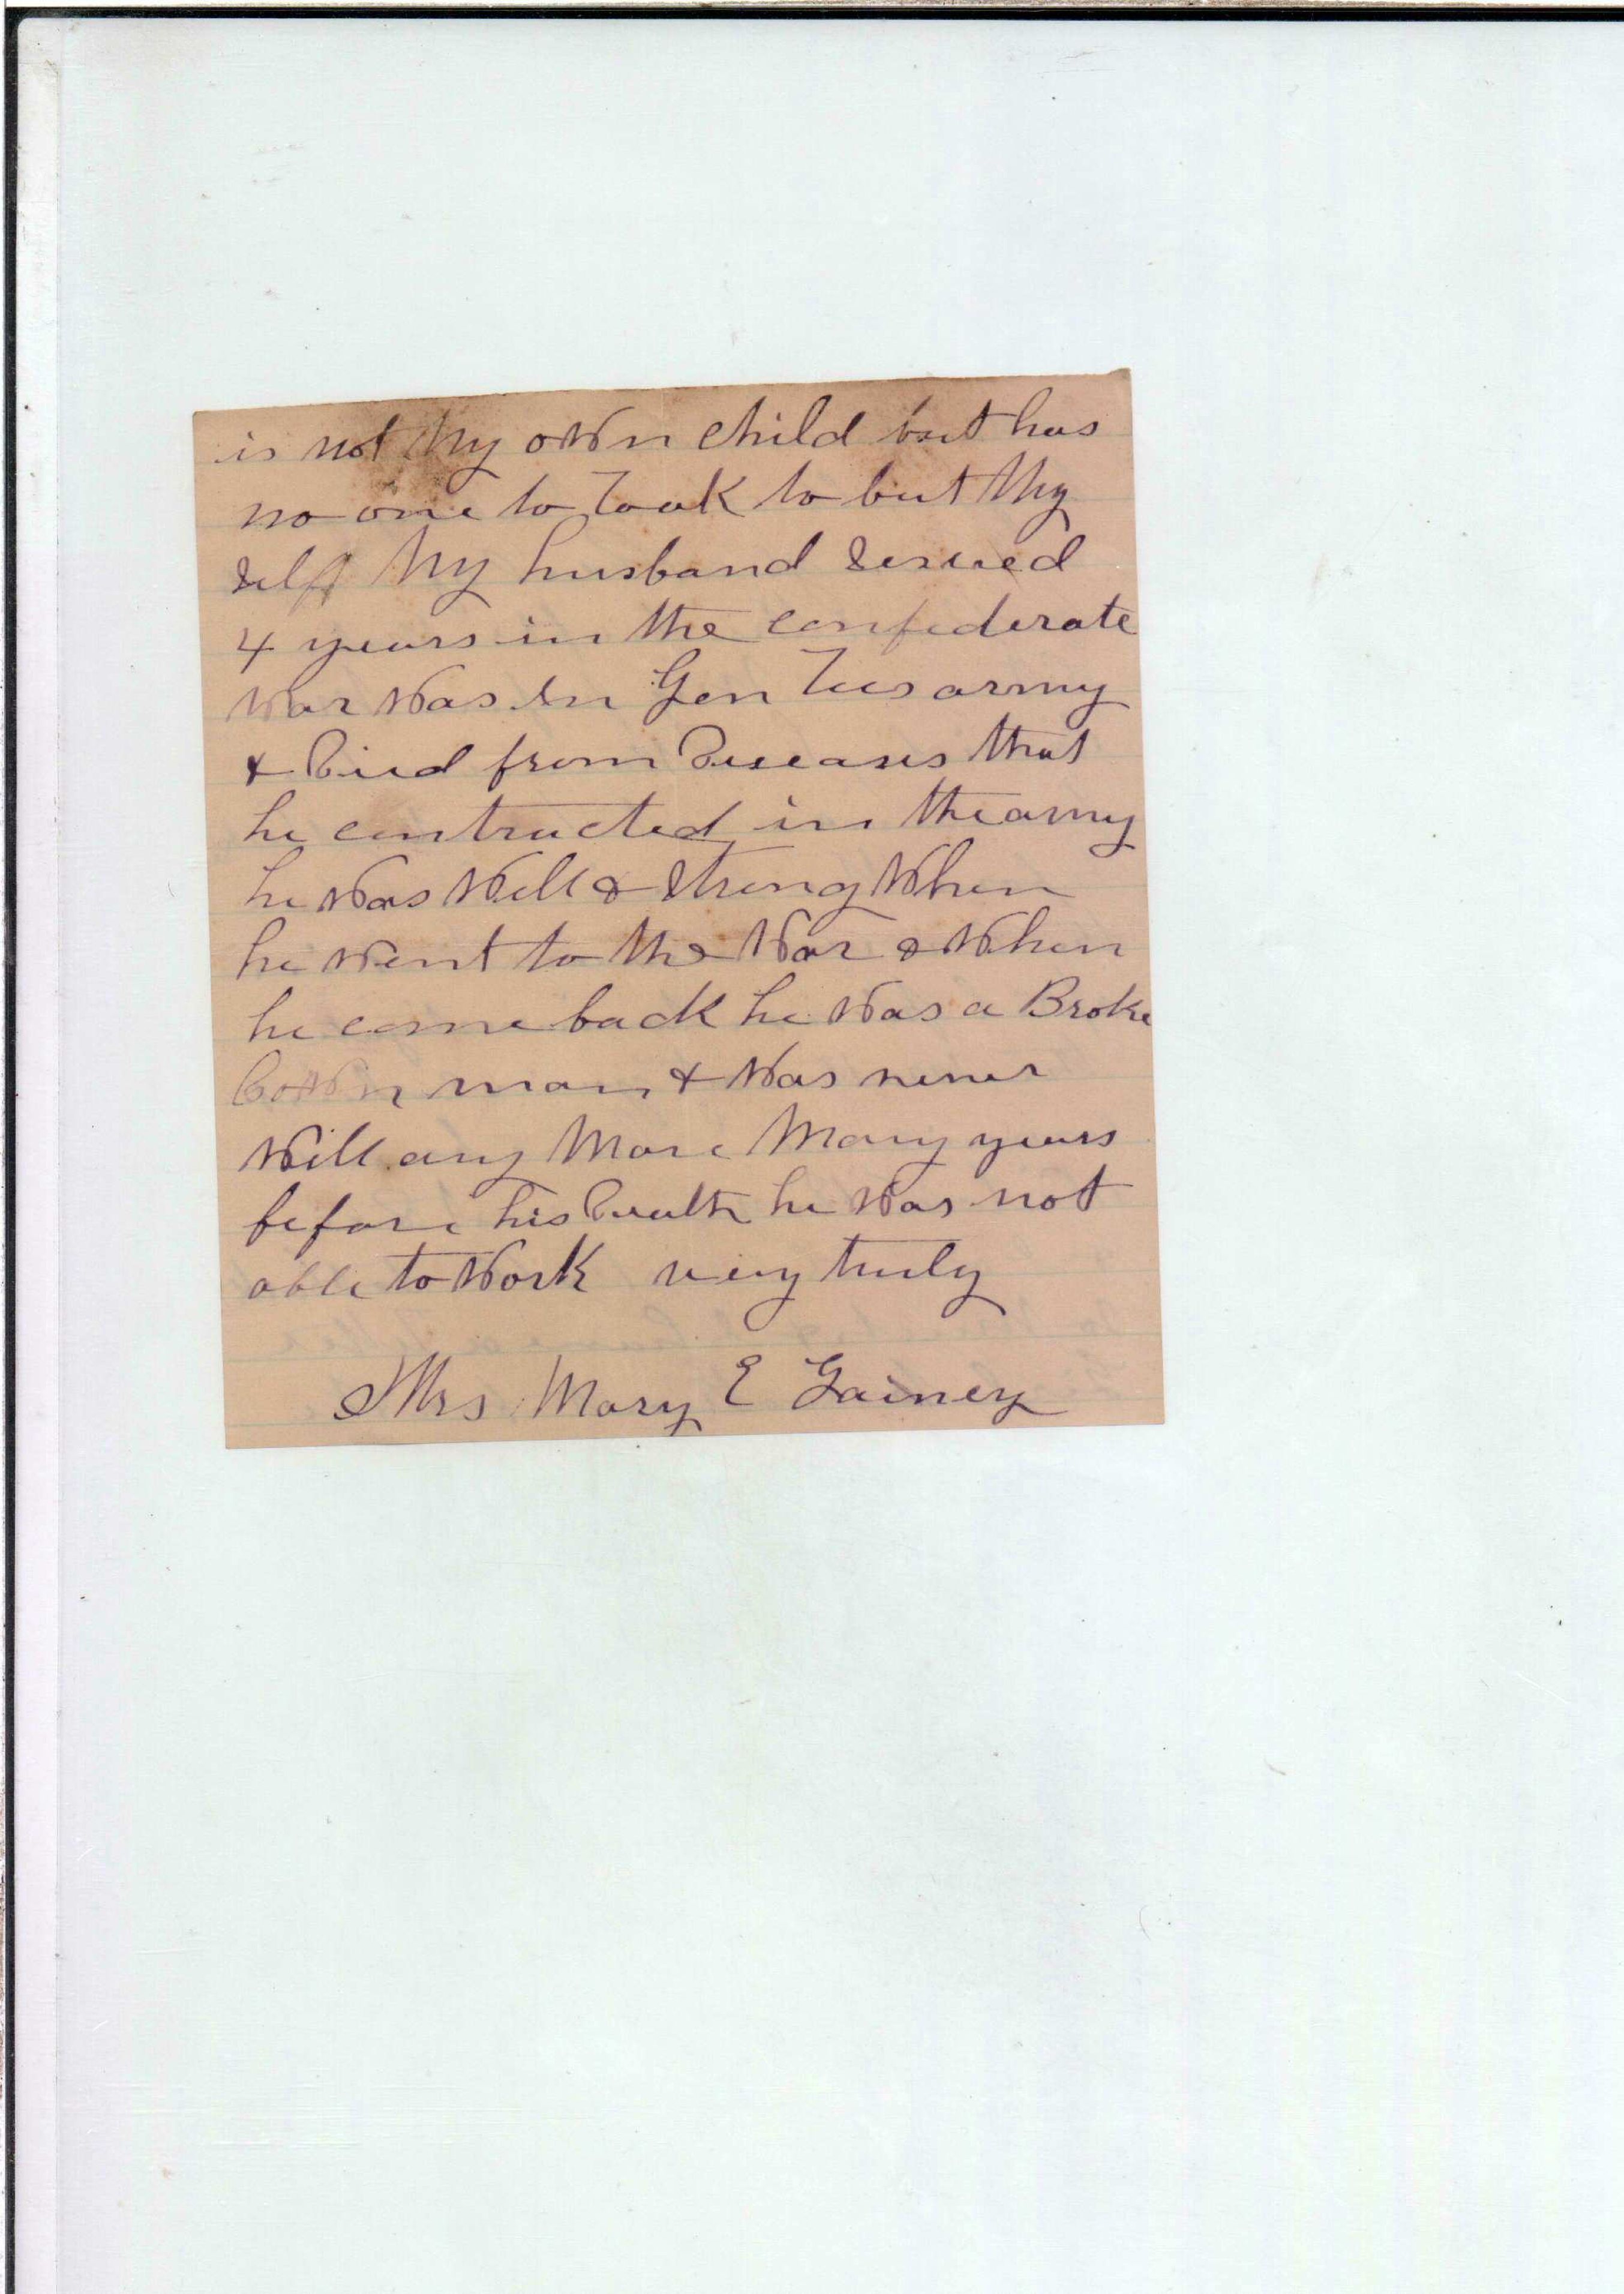 is not My own child but has
no one to Look to but My
self My husband served
4 years in the confederate
War Was in Gen Lees army
& Died from Diseases that
he contracted in the army
he Was Well & Strong When
he Went to the War & When
he come back he Was a Broke
Down man & Was never
Well any More Many years
before his Death he Was not
able to Work very truly
Mrs Mary E Gainey